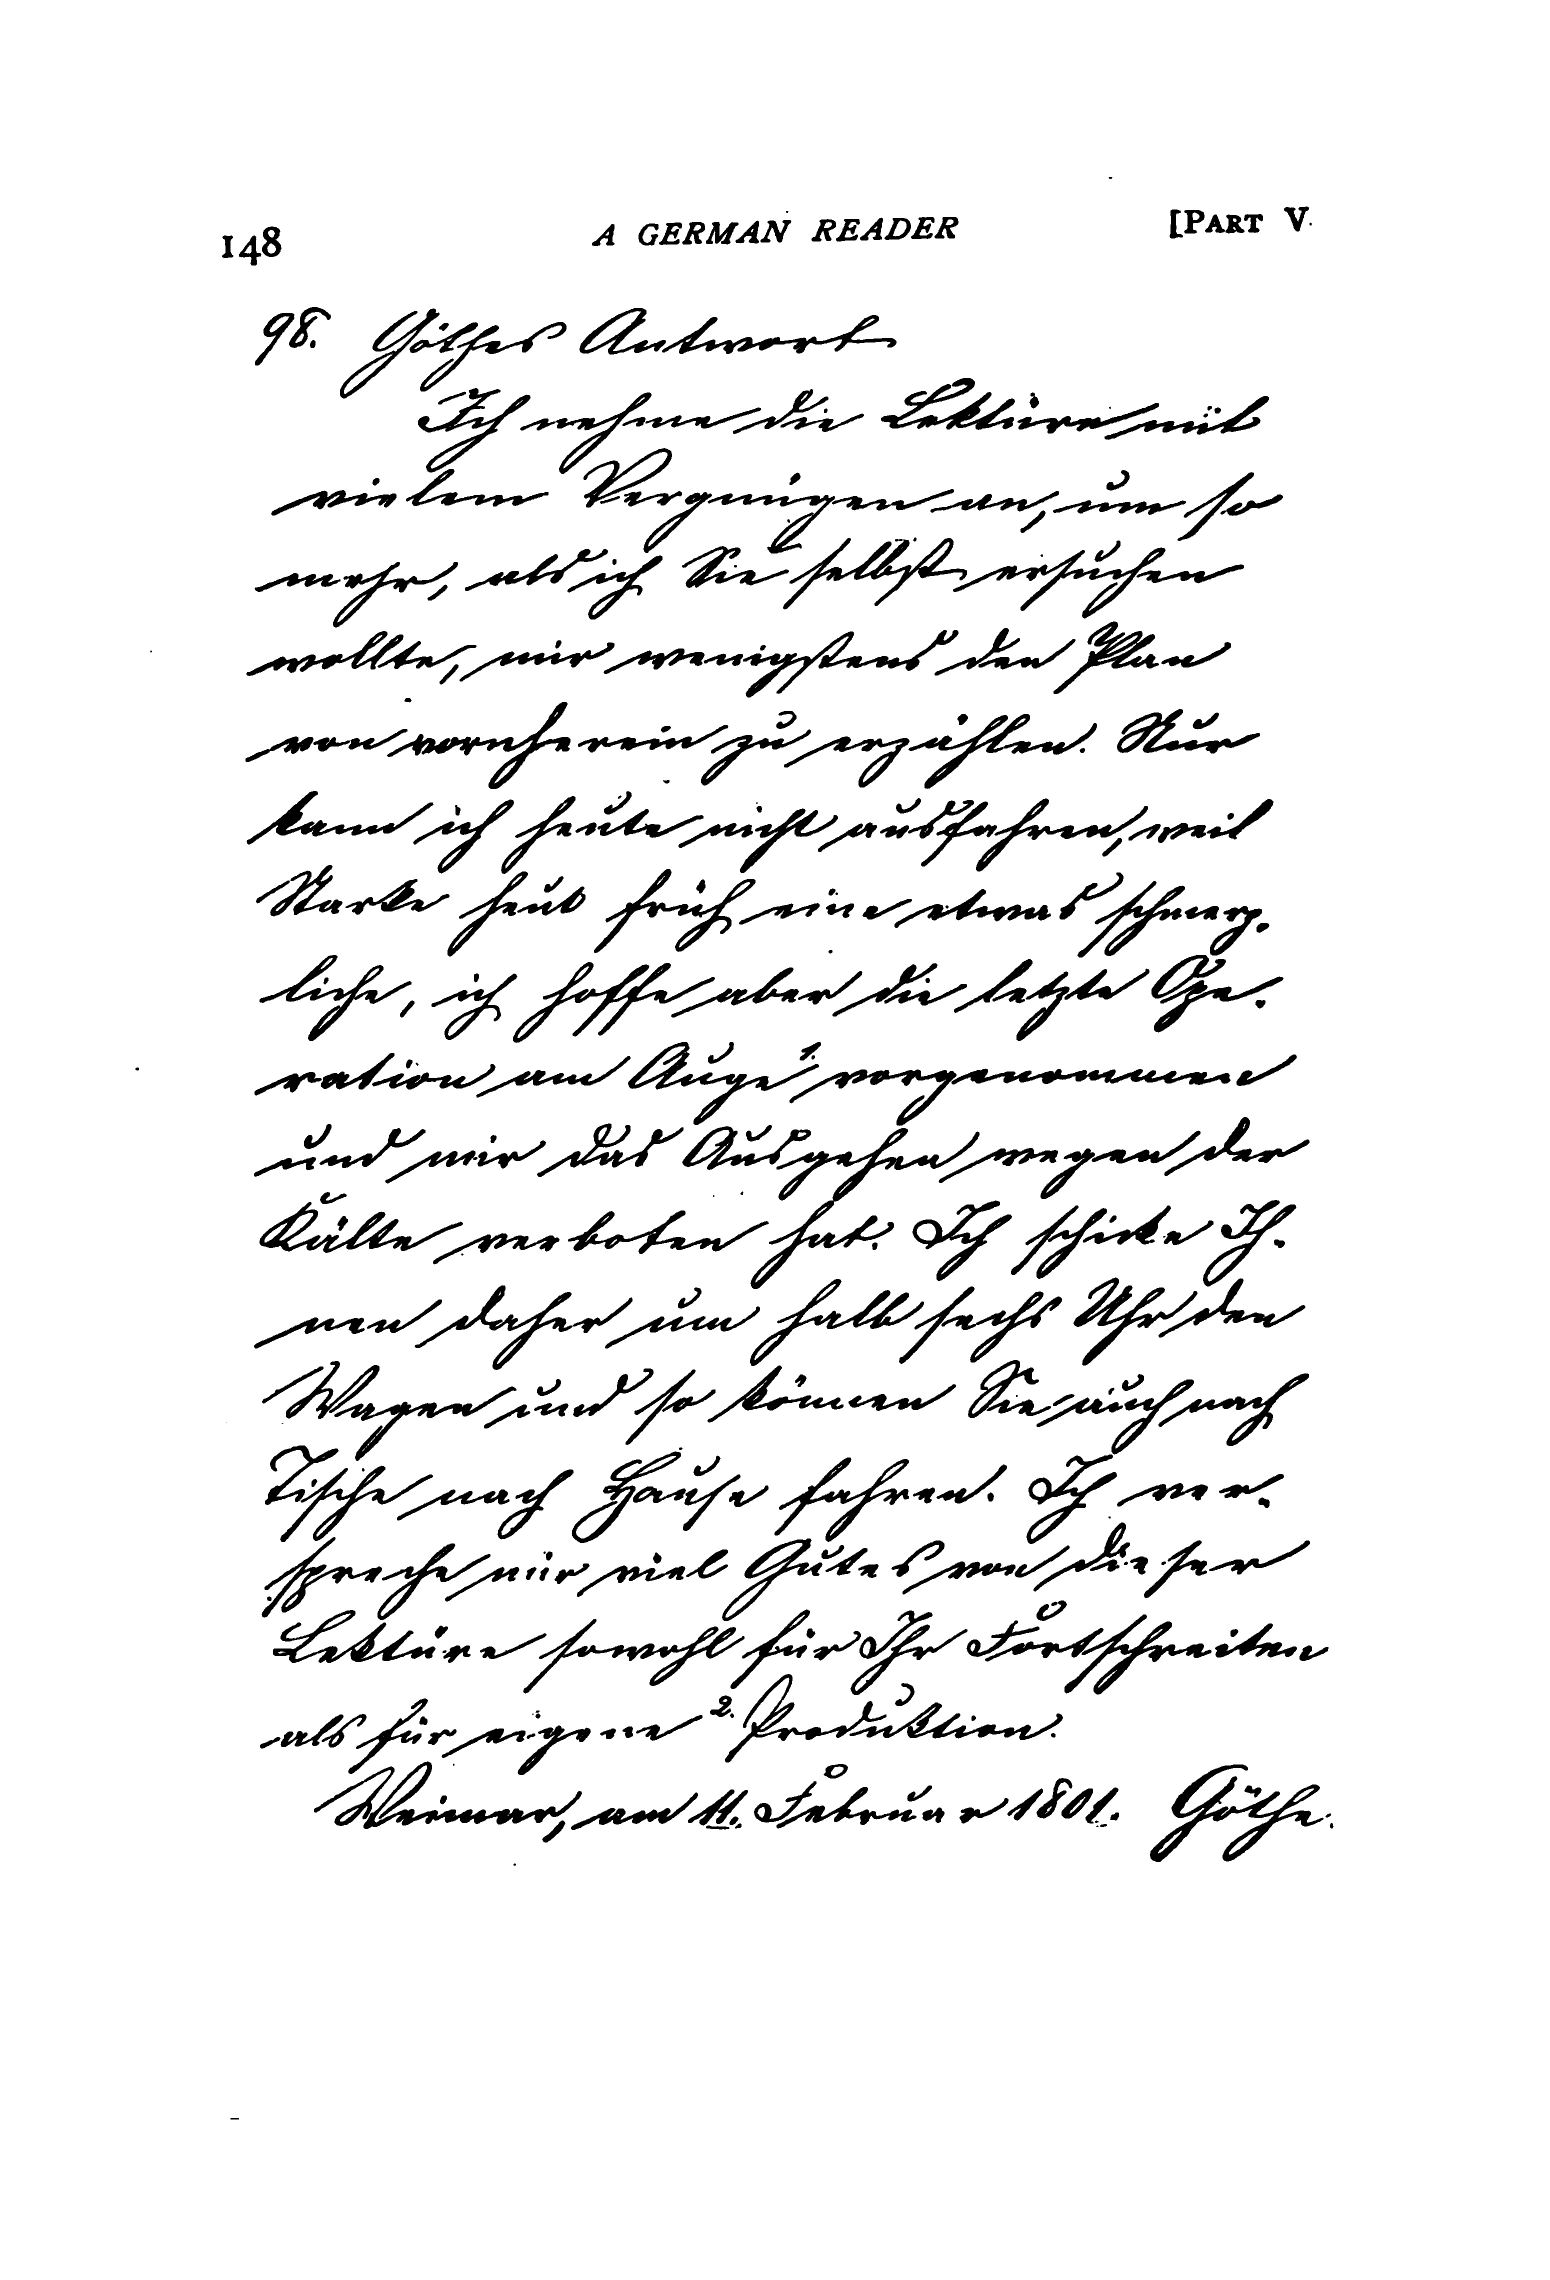 148 A GERMAN READER [PART V.
98. Göthes Antwort
Ich nehme die Lektüre mit
vielem Vergnügen an, um so
mehr, als ich Sie selbst ersuchen
wollte, mir wenigstens den Plan
von vornherein zu erzählen. Nur
kann ich heute nicht ausfahren, weil
Starke heut früh eine etwas schmerz-
liche, ich hoffe aber die letzte Ope-
ration am Auge 1. vorgenommen
und mir das Ausgehen wegen der
Kälte verboten hat. Ich schicke Ih-
nen daher um halb sechs Uhr den
Wagen und so können Sie auch nach
Tische nach Hause fahren. Ich ver-
spreche mir viel Gutes von dieser
Lektüre sowohl für Ihr Fortschreiten
als für eigene 2. Produktion.
Weimar, am 11. Februar 1801. Göthe.